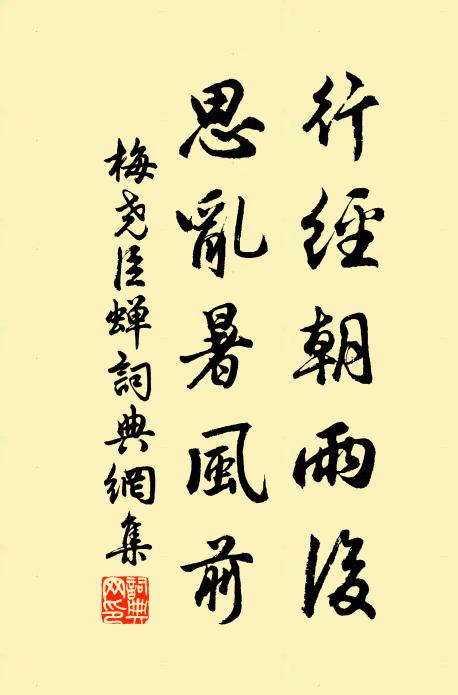 行經朝雨後
思亂暑風前
梅堯臣蟬詞典網集
詞典網印